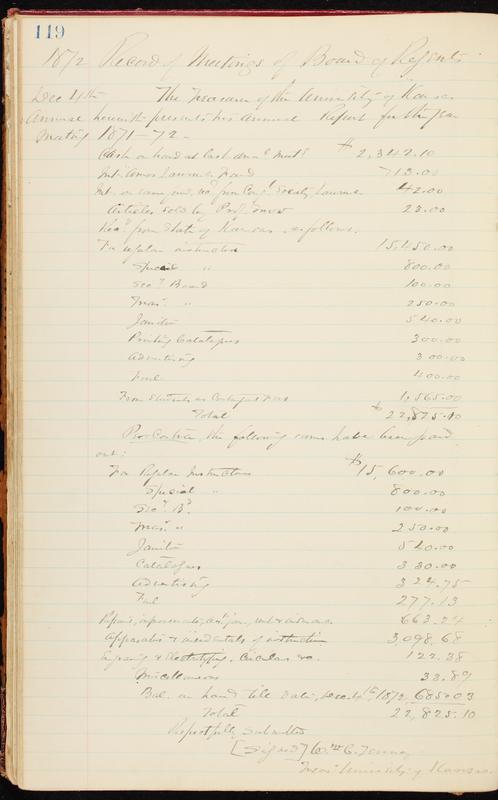 119
1872 Record of Meetings of Board of Regents
Dec 4th The Treasurer of the University of Kansas
herewith presents his Annual Report for the year
1871-72-
Cash on hand at last ann. Meet. $2,342.10
Int. Amos Lawrence Fund 713.00
Int. on Lawrence 42.00
Articles sold by Prof. 23.00
Rec'd from State of Kansas, as follows.
For regular instructors 15,450.00
Special " 800.00
Sec'y Board 100.00
Treas. " 250.00
Janitor 540.00
Printing Catalogues 300.00
Advertising 300.00
Fuel 400.00
From Students as Contingent Fees 1,565.00
Total $22,825.10
Per Contra, the following sums have been paid
out:
For Regular Instructors $15,600.00
Special " 800.00
Sec'y B'd. 100.00
Treas. " 250.00
Janitor 540.00
Catalogues 330.00
Advertising 324.75
Fuel 277.13
Repairs, 663.24
Apparatus & incidentals of instruction 3,098.68
Engraving & Electrotyping, Circulars &c. 122.38
Miscellaneous 33.89
Bal. on hand till date, Dec. 4th, 1872 685.03
Total 22,825.10
Respectfully Submitted
[Signed] Wm C. Tenney
Treas. University of Kansas.